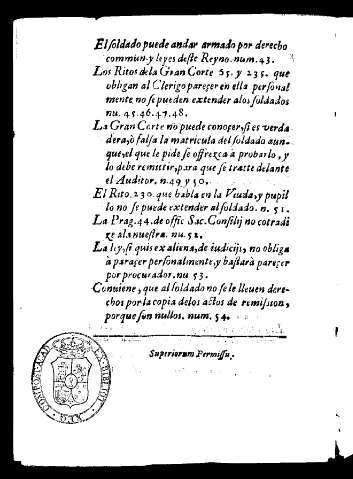 El soldado puede andar armado por derecho
commun. y leyes deste Reyno. num. 43.
Los Ritos dela Gran Corte 65. y 235. que
obligan al Clerigo pareçer en ella personal
mente no se pueden extender alos soldados
nu. 45. 46. 47. 48.
La Gran Corte no puede conoçer, si es verda
dera, ò falsa la matricula del soldado aun-
que, el que le pide se offrezca à probarlo, y
lo debe remitir, para que se tratte delante
el Auditor. n. 49 y 50.
El Rito. 230. que habla en la Viuda, y pupil
lo no se puede extender al soldado. n. 51.
La Prag. 44. de offic. Sac. Consilij no cotradi
ze ala nuestra. nu. 52.
La ley, si quis ex aliena, de iudicijs, no obliga
à pareçer personalmente, y bastarà pareçer
por procurador. nu 53.
Conuiene, que al soldado no se le lleuen dere-
chos por la copia delos actos de remission,
porque son nullos. num. 54.
Superiorum Permissu.